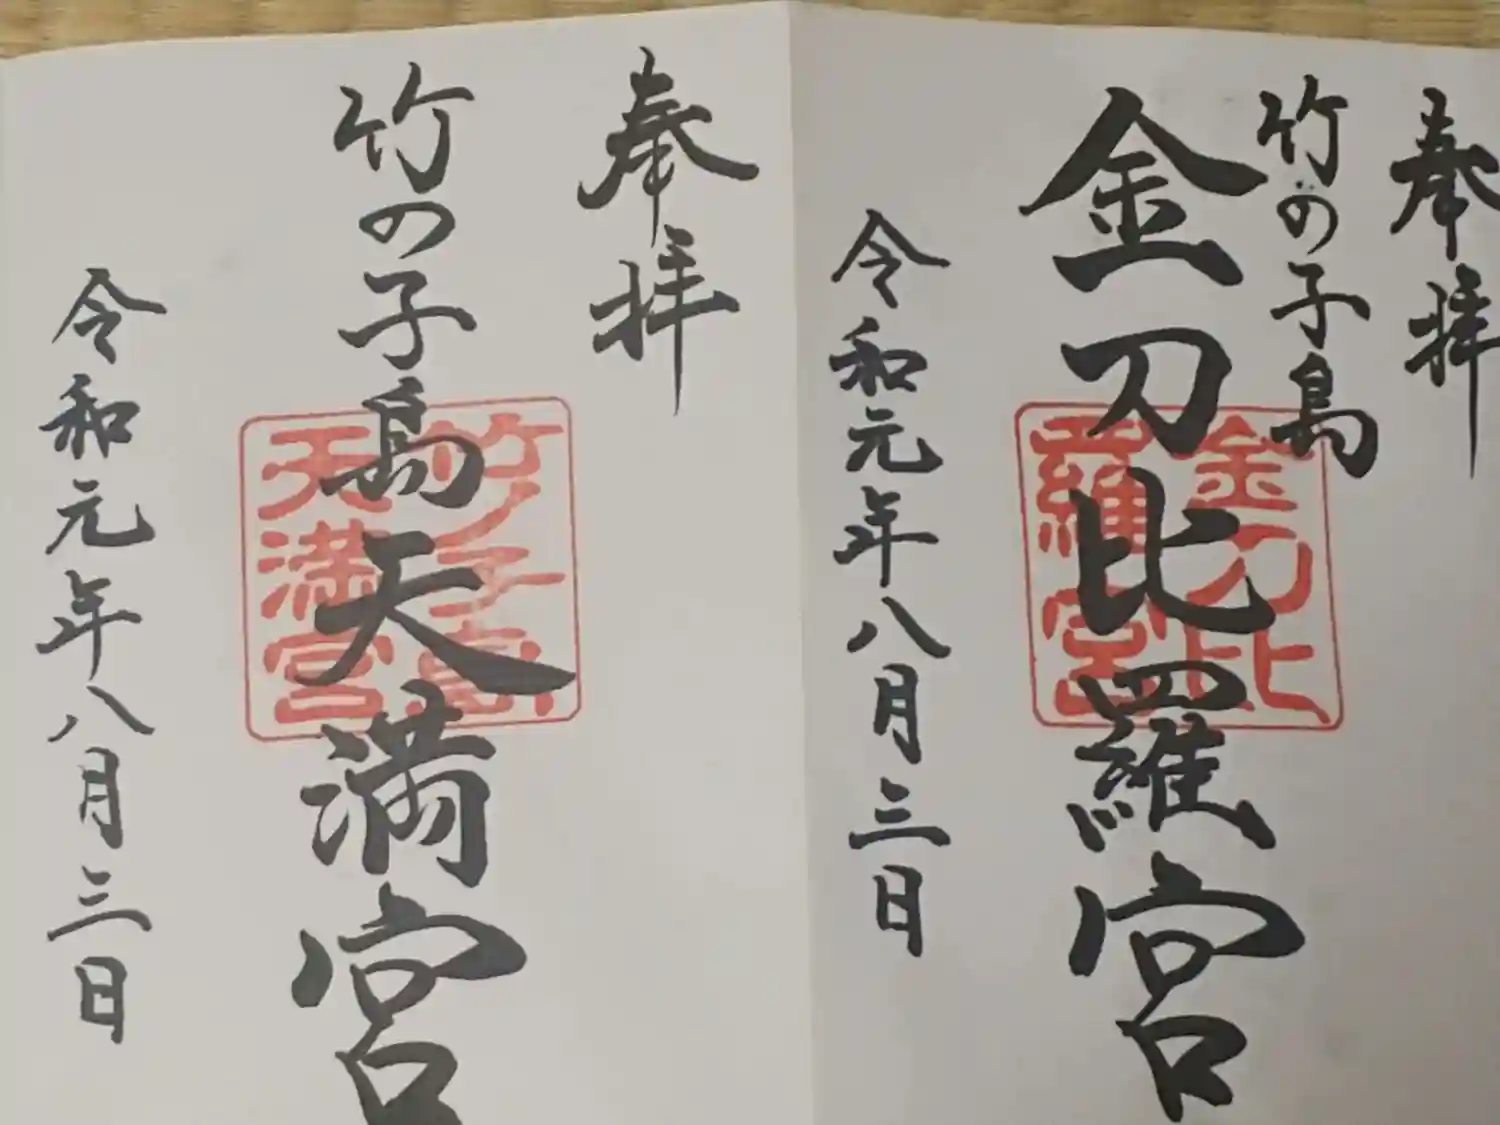 奉拝
竹の子島
金刀比羅宮
金刀比
羅宮
令和元年八月三日
奉拝
竹の子島天満宮
竹ノ子島
天満宮
令和元年八月三日